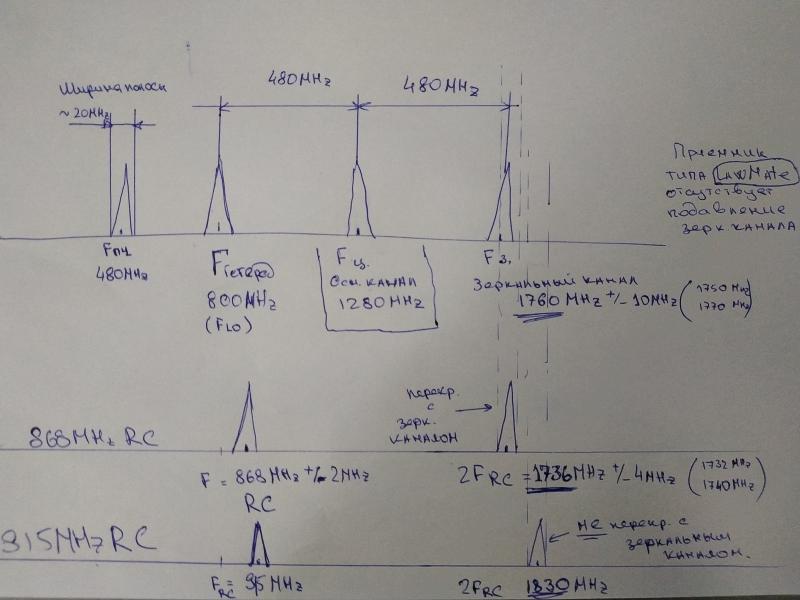 480MHz
480MHz
Ширина полосы
~20MHz
Приемник
типа LawMate
отсутствует
подавление
зерк канала
Fпч
480MHz
Fгетерод
800MHz
(FLO)
Fц.
Осн. канал
1280MHz
Fз.
Зеркальный канал
1760MHz +/- 10MHz (1750MHz
1770MHz)
перекр.
с
зерк.
каналом
868MHz RC
F = 868MHz +/- 2MHz
RC
2FRC = 1736MHz +/- 4MHz (1732MHz
1740MHz)
915MHz RC
не перекр. с
зеркальным
каналом.
FRC = 915MHz
2FRC 1830MHz